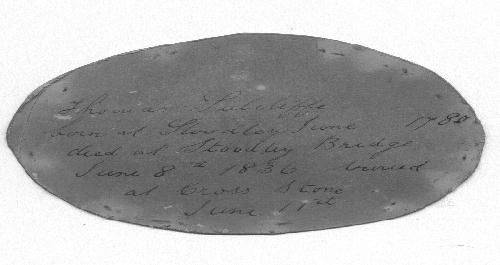 Thomas Sutcliffe
born at Stoodley June 1780
died at Stoodley Bridge
June 8th 1836 buried
at Cross Stone
June 11st